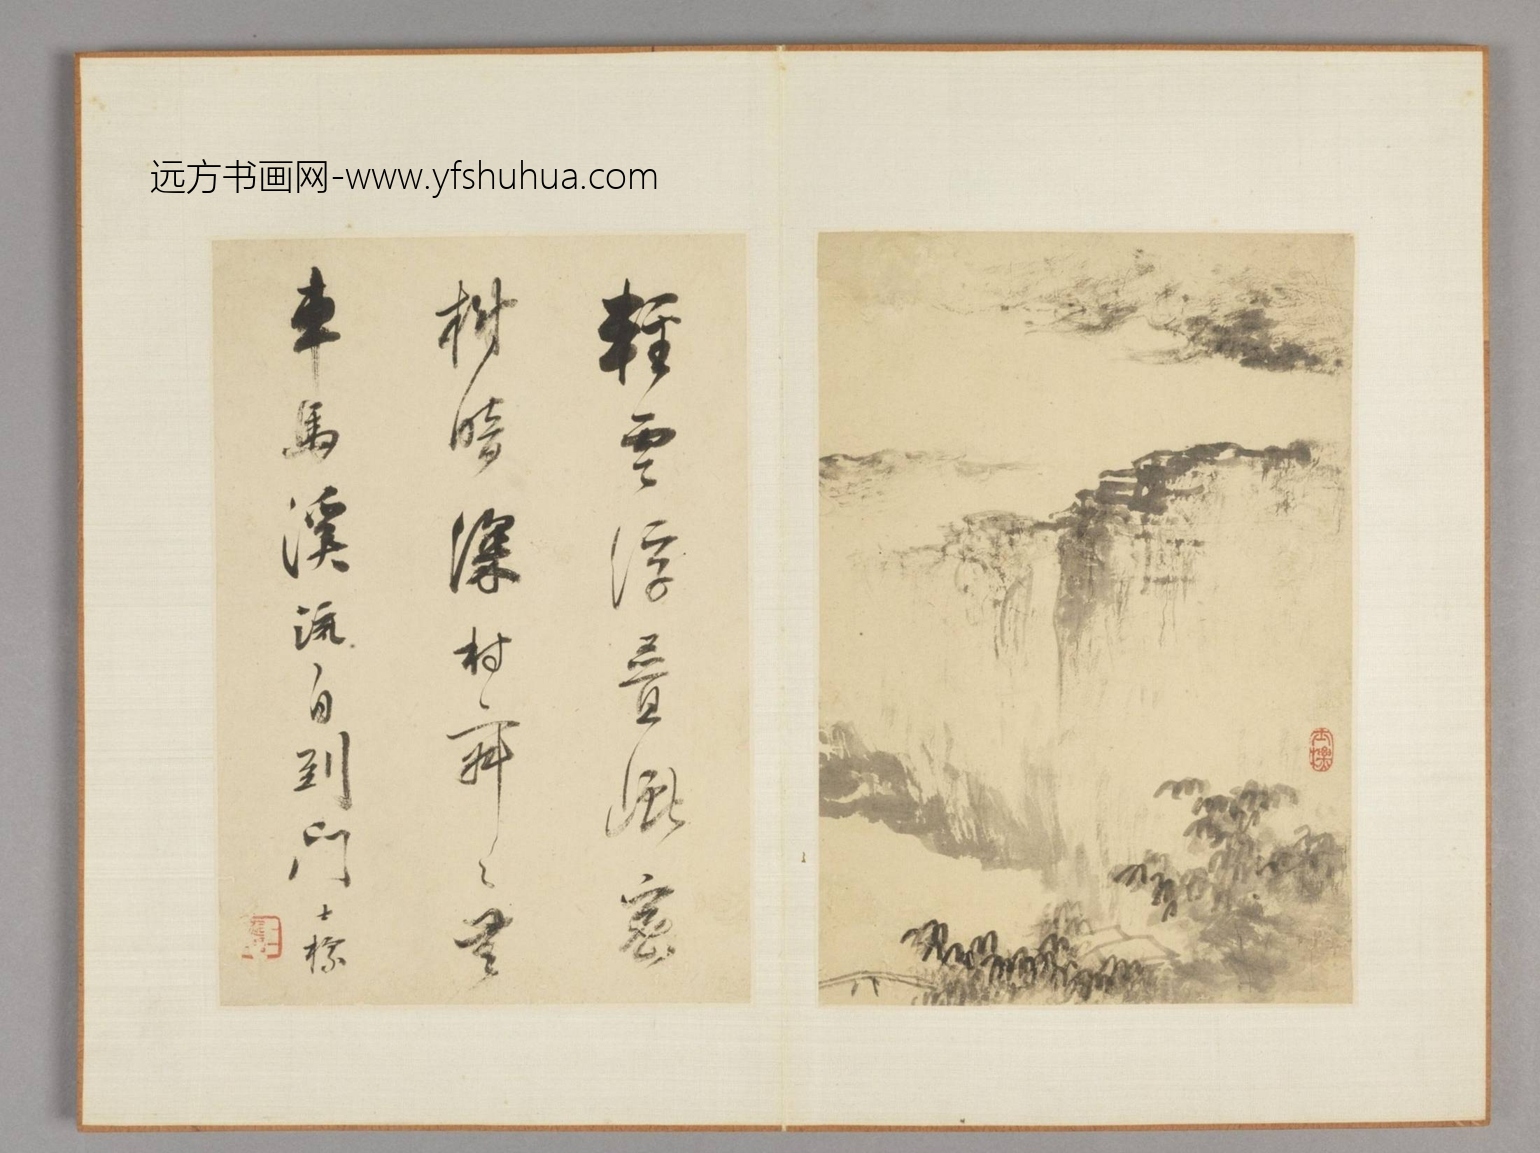 远方书画网-www.yfshuhua.com
輕雲浮疊巘密
樹暗深村寂々無
車馬溪流自到門 士標